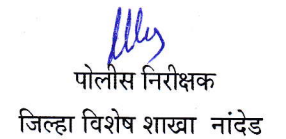 पोलीस निरीक्षक
जिल्हा विशेष शाखा नांदेड